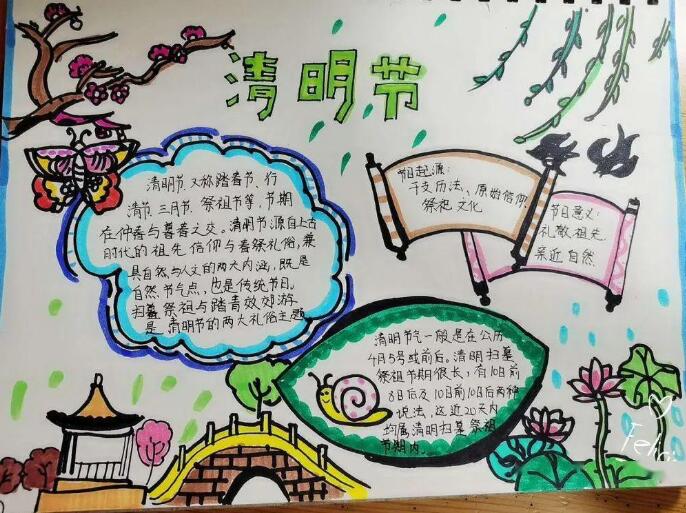 清明节
清明节,又称踏春节、行
清节、三月节、祭祖节等,节期
在仲春与暮春之交。清明节源自上古
时代的祖先信仰与春祭礼俗,兼
具自然与人文的两大内涵,既是
自然节气点,也是传统节日。
扫墓祭祖与踏青郊游
是清明节的两大礼俗主题
节日起源:
干支历法、原始信仰
祭祖文化
节日意义:
礼敬祖先
亲近自然
清明节气一般是在公历
4月5号或前后。清明扫墓
祭祖节期很长,有10日前
8日后及10日前10日后两种
说法,这近20天内
均属清明扫墓祭祖
节期内。